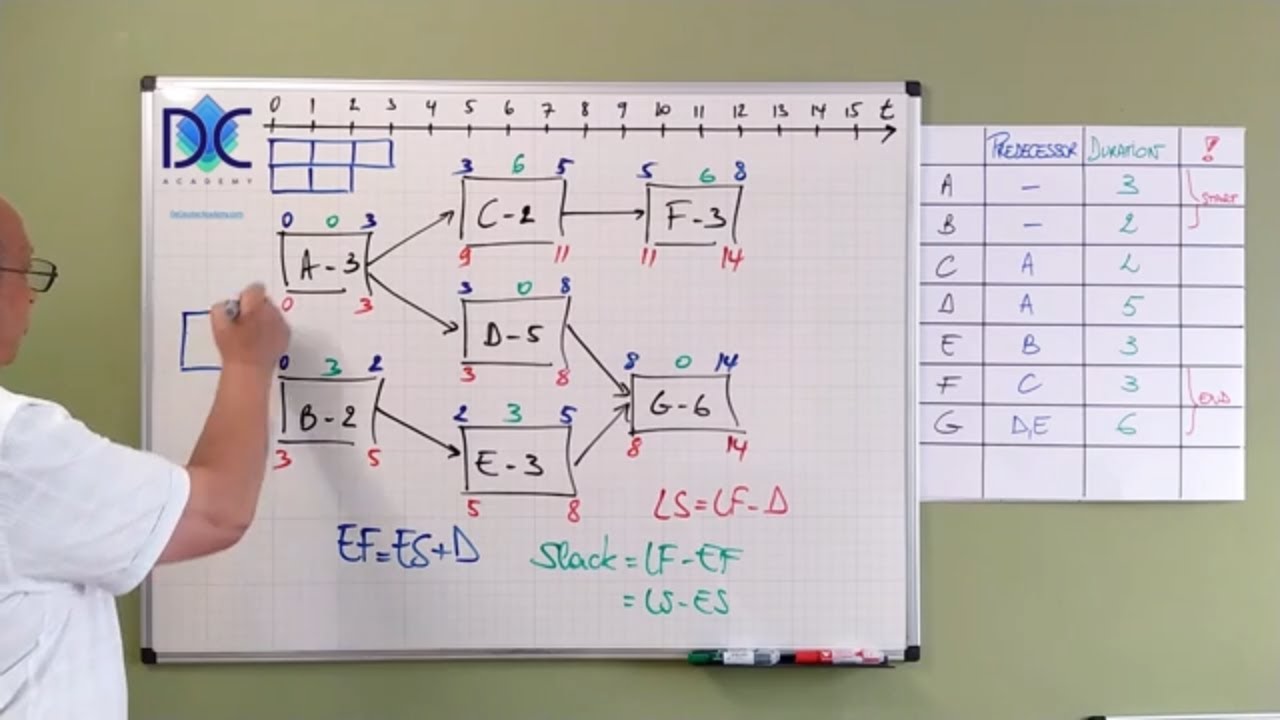 0 1 2 3 4 5 6 7 8 9 10 11 12 13 14 15 t
DC
ACADEMY
0 0 3
A - 3
0 3
3 6 5
C - 2
9 11
5 6 8
F - 3
11 14
3 0 8
D - 5
3 8
0 3 2
B - 2
3 5
2 3 5
E - 3
5 8
8 0 14
G - 6
8 14
LS = LF - D
EF = ES + D
Slack = LF - EF
= LS - ES
PREDECESSOR DURATION !
A - 3 START
B - 2
C A 2
D A 5
E B 3
F C 3 END
G D,E 6